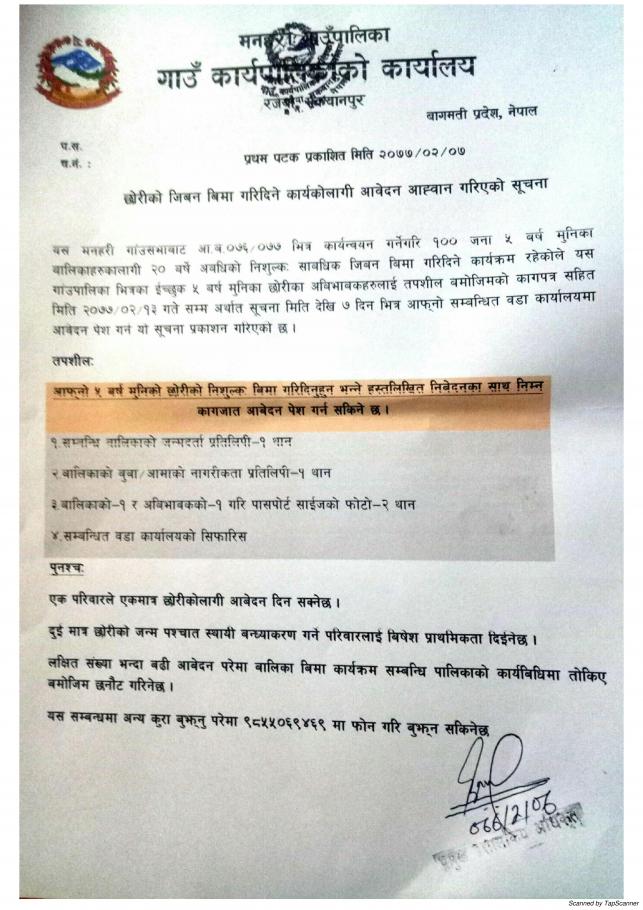 मनहरी गाउँपालिका
गाउँ कार्यपालिकाको कार्यालय
बागमती प्रदेश, नेपाल
प.स.
च.नं. :
प्रथम पटक प्रकाशित मिति २०७७/०२/०७
छोरीको जिबन बिमा गरिदिने कार्यकोलागी आवेदन आह्वान गरिएको सूचना
यस मनहरी गांउसभाबाट आ.ब.०७६/०७७ भित्र कार्यन्वयन गर्नेगरि १०० जना ५ बर्ष मुनिका
बालिकाहरुकालागी २० बर्षे अबधिको निशुल्क सावधिक जिबन बिमा गरिदिने कार्यक्रम रहेकोले यस
गांउपालिका भित्रका ईच्छुक ५ बर्ष मुनिका छोरीका अबिभाबकहरुलाई तपशील बमोजिमको कागपत्र सहित
मिति २०७७/०२/१३ गते सम्म अर्थात सूचना मिति देखि ७ दिन भित्र आफ्नो सम्बन्धित वडा कार्यालयमा
आबेदन पेश गर्न यो सूचना प्रकाशन गरिएको छ ।
तपशीलः
आफ्नो ५ बर्ष मुनिको छोरीको निशुल्क बिमा गरिदिनुहुन भन्ने हस्तलिखित निबेदनका साथ निम्न
कागजात आबेदन पेश गर्न सकिने छ ।
१.सम्बन्धि बालिकाको जन्मदर्ता प्रतिलिपी–१ थान
२.बालिकाको बुबा/आमाको नागरीकता प्रतिलिपी–१ थान
३.बालिकाको–१ र अबिभाबकको–१ गरि पासपोर्ट साईजको फोटो–२ थान
४.सम्बन्धित वडा कार्यालयको सिफारिस
पुनश्चः
एक परिवारले एकमात्र छोरीकोलागी आबेदन दिन सक्नेछ ।
दुई मात्र छोरीको जन्म पश्चात स्थायी बन्ध्याकरण गर्ने परिवारलाई बिषेश प्राथमिकता दिईनेछ ।
लक्षित संख्या भन्दा बढी आबेदन परेमा बालिका बिमा कार्यक्रम सम्बन्धि पालिकाको कार्यबिधिमा तोकिए
बमोजिम छनौट गरिनेछ ।
यस सम्बन्धमा अन्य कुरा बुझ्नु परेमा ९८५५०६९४६९ मा फोन गरि बुझ्न सकिनेछ
प्रमुख प्रशासकिय अधिकृत
Scanned by TapScanner